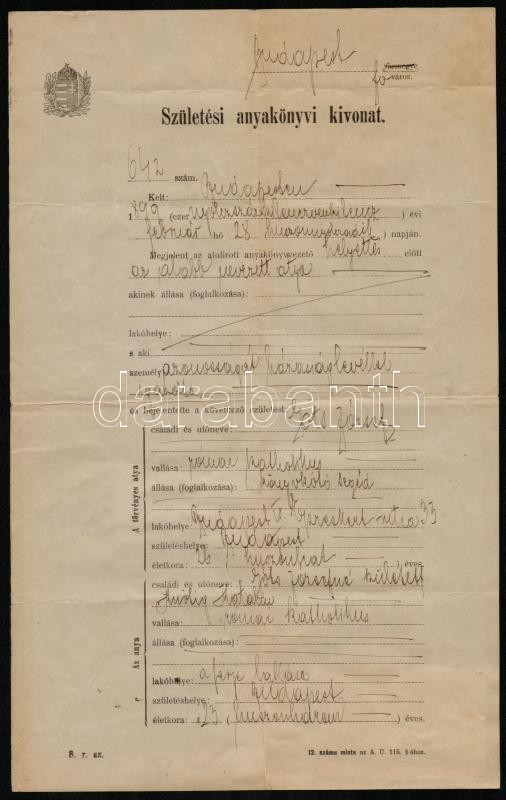 Budapest
fő vármegye
város.
Születési anyakönyvi kivonat.
642 szám.
Kelt: Budapesten
1899 (ezer nyolczszázkilenczvenkilencz) évi
február hó 28 huszonnyolczadik napján.
Megjelent az alulirott anyakönyvvezető helyettes előtt
az alább nevezett atya
akinek állása (foglalkozása):
lakóhelye:
s aki
személyazonosságát házasságlevéllel
igazolta
és bejelentette a következő születést:
családi és utóneve: József
A törvényes atya
vallása: római katholikus
állása (foglalkozása): segéd
lakóhelye: Budapest Eperskert utca 33
születéshelye: Budapest
életkora: 26 huszonhat éves
családi és utóneve: Józsefné született
Az anya
vallása: római katholikus
állása (foglalkozása):
lakóhelye: a férje lakása
születéshelye: Budapest
életkora: 23 (huszonhárom) éves.
8. r. sz.
12. számu minta az A. U. 115. §-ához.
darabanth